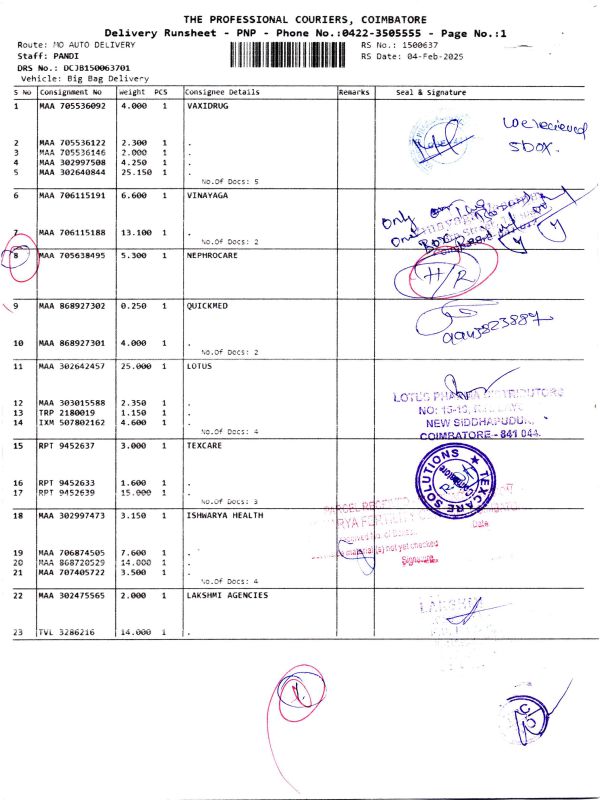 THE PROFESSIONAL COURIERS, COIMBATORE
Delivery Runsheet - PNP - Phone No.:0422-3505555 - Page No.:1
Route: MO AUTO DELIVERY RS No.: 1500637
Staff: PANDI RS Date: 04-Feb-2025
DRS No.: DCJB150063701
Vehicle: Big Bag Delivery
S No Consignment No Weight PCS Consignee Details Remarks Seal & Signature
1 MAA 705536092 4.000 1 VAXIDRUG
We recieved
5 box.
2 MAA 705536122 2.300 1 .
3 MAA 705536146 2.000 1 .
4 MAA 302997508 4.250 1 .
5 MAA 302640844 25.150 1 .
No.Of Docs: 5
6 MAA 706115191 6.600 1 VINAYAGA
Only
one Box
7 MAA 706115188 13.100 1 .
No.Of Docs: 2
8 MAA 705638495 5.300 1 NEPHROCARE
H/R
9 MAA 868927302 0.250 1 QUICKMED
10 MAA 868927301 4.000 1 .
No.Of Docs: 2
11 MAA 302642457 25.000 1 LOTUS
LOTUS PHARMA DISTRIBUTORS
NO: 15-16,
NEW SIDDHAPUDUR,
COIMBATORE - 641 044.
12 MAA 303015588 2.350 1 .
13 TRP 2180019 1.150 1 .
14 IXM 507802162 4.600 1 .
No.Of Docs: 4
15 RPT 9452637 3.000 1 TEXCARE
TEXCARE SOLUTIONS
Coimbatore
16 RPT 9452633 1.600 1 .
17 RPT 9452639 15.000 1 .
No.Of Docs: 3
18 MAA 302997473 3.150 1 ISHWARYA HEALTH
Date
material(s) not yet checked
Signature
19 MAA 706874505 7.600 1 .
20 MAA 868720529 14.000 1 .
21 MAA 707405722 3.500 1 .
No.Of Docs: 4
22 MAA 302475565 2.000 1 LAKSHMI AGENCIES
23 TVL 3286216 14.000 1 .